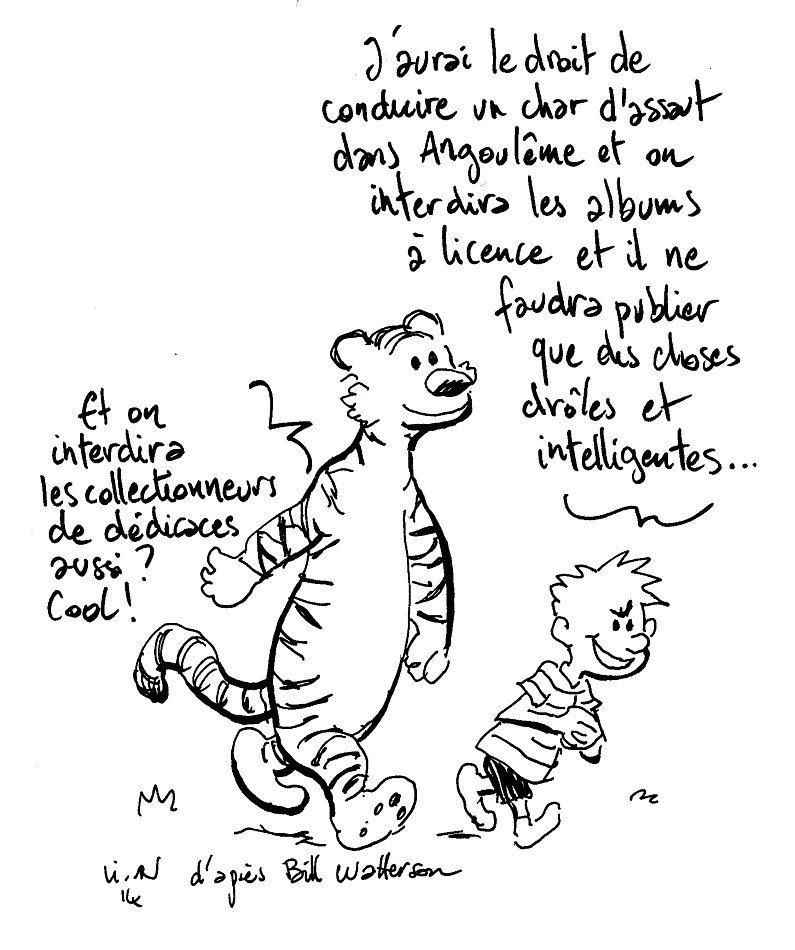 J'aurai le droit de
conduire un char d'assaut
dans Angoulême et on
interdira les albums
à licence et il ne
faudra publier
que des choses
drôles et
intelligentes...
Et on
interdira
les collectionneurs
de dédicaces
aussi?
Cool!
d'après Bill Watterson